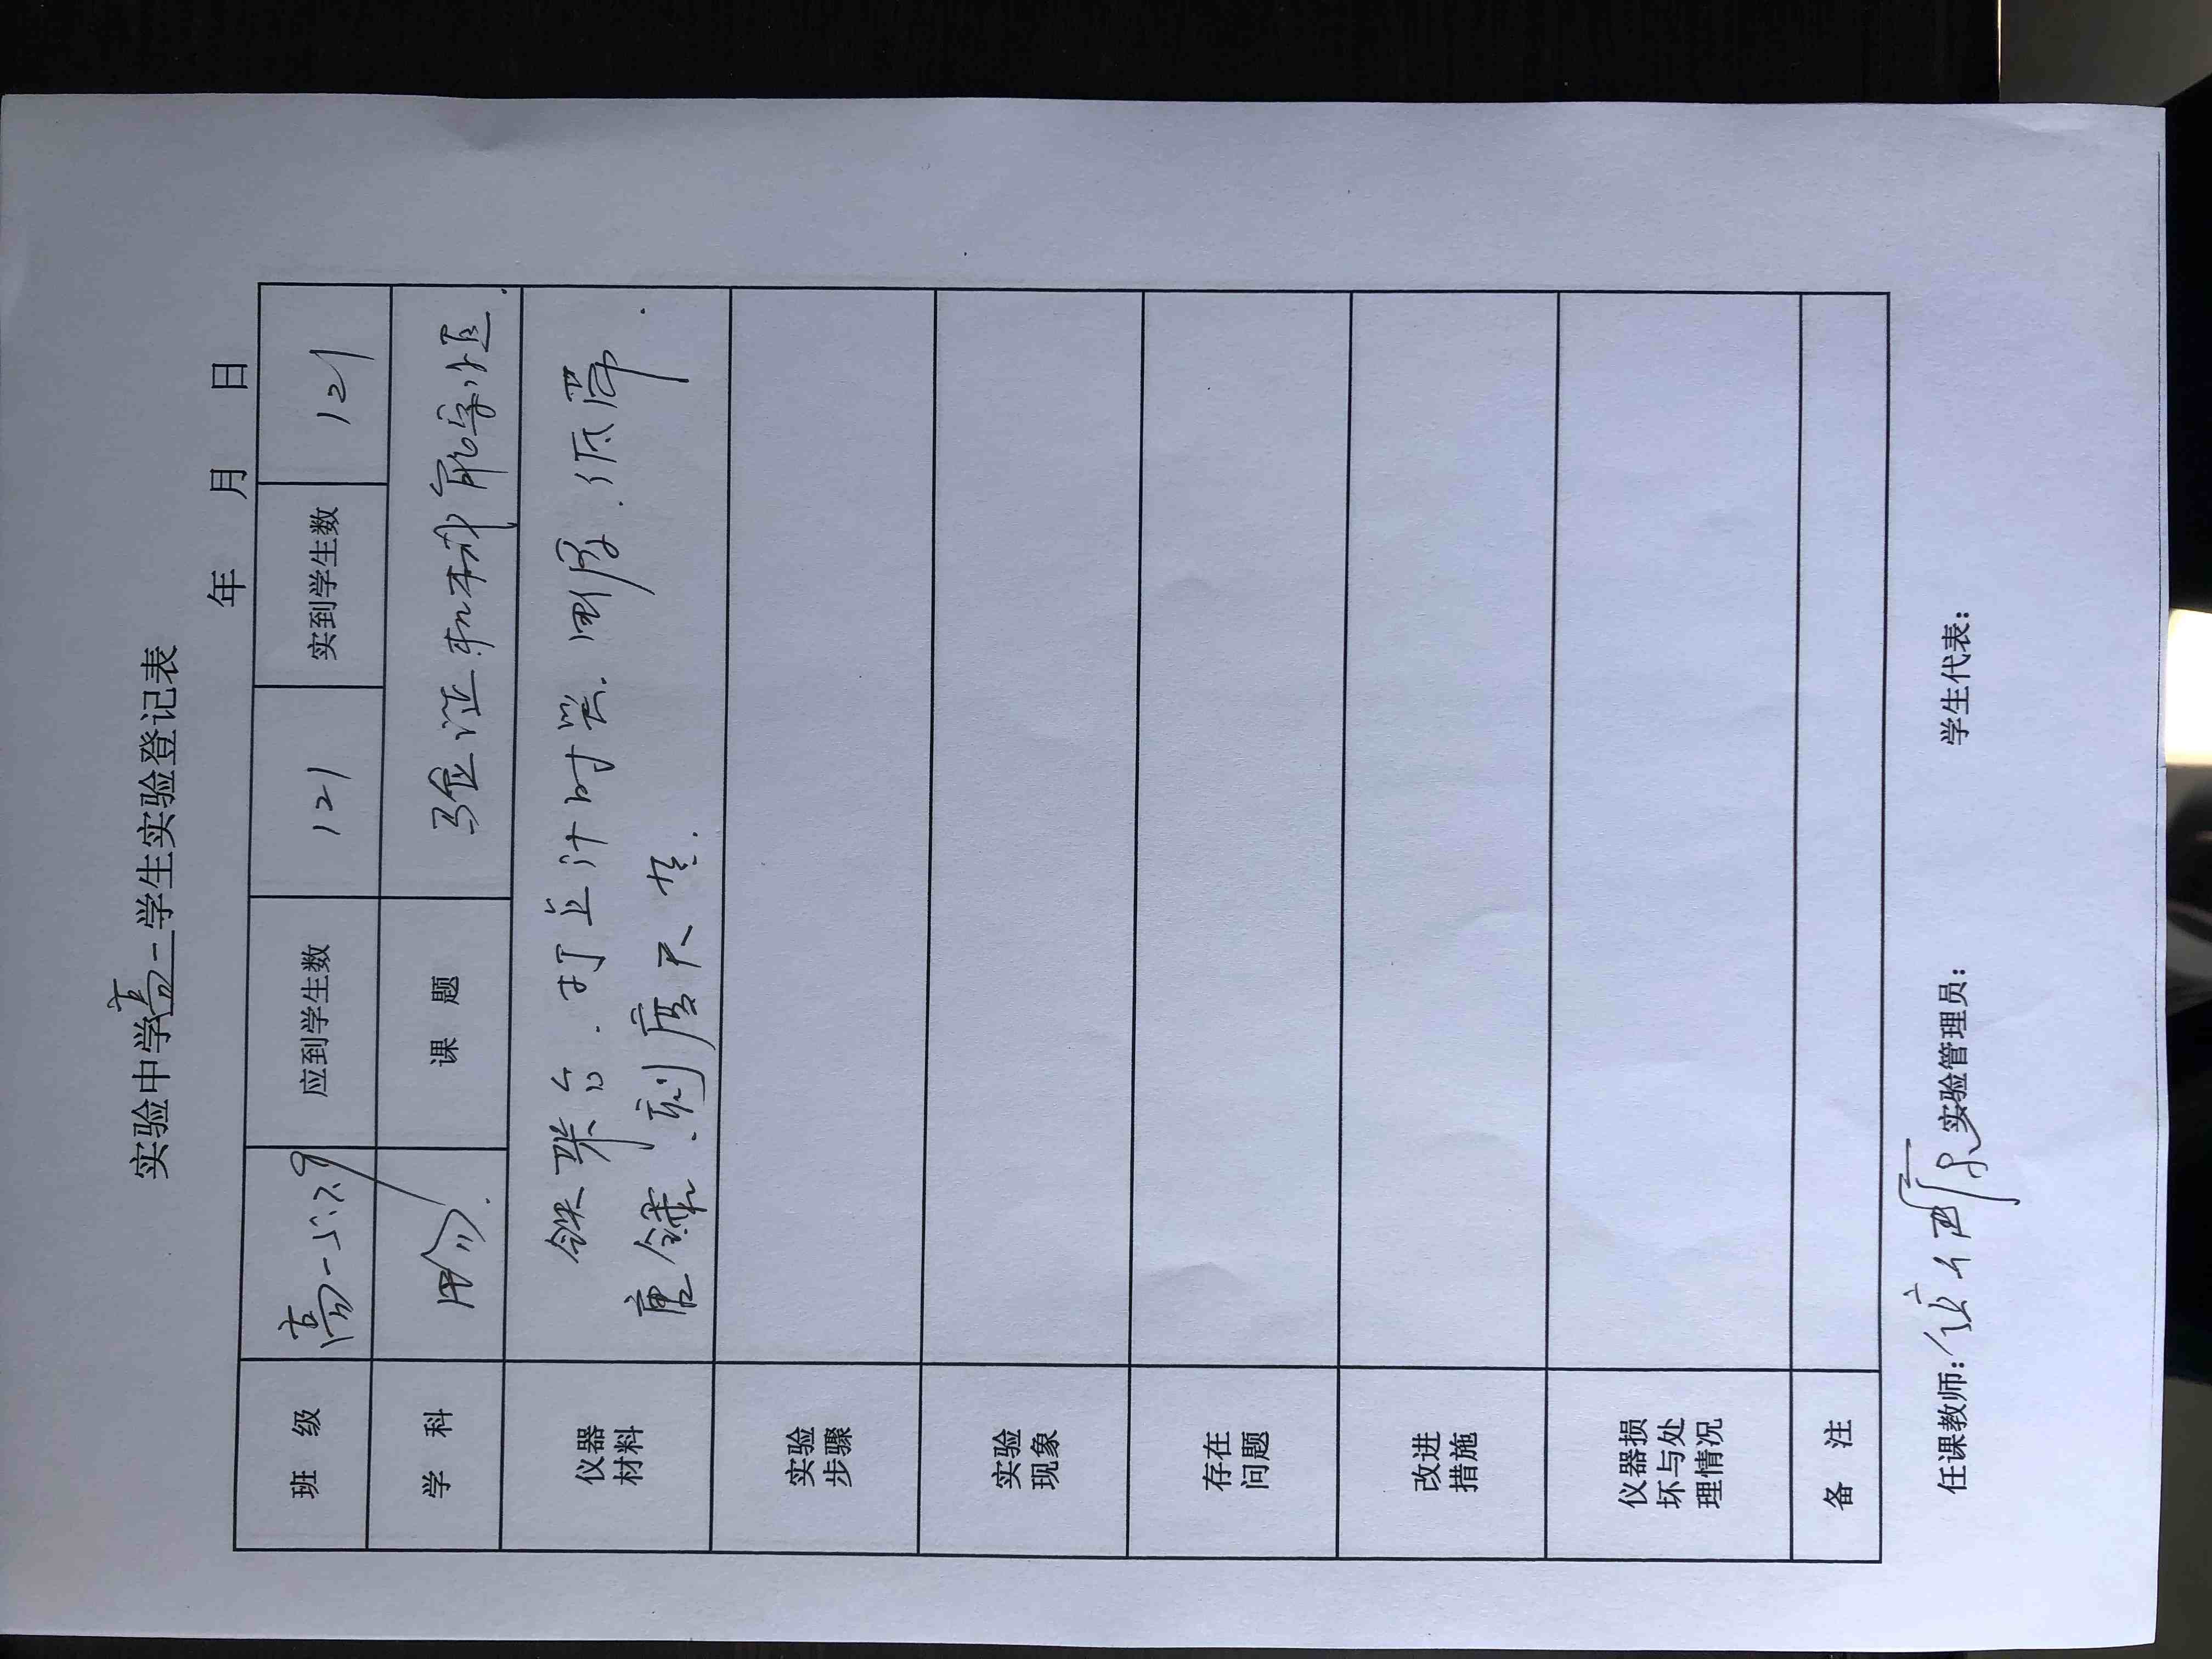 实验中学高一学生实验登记表
年 月 日
班 级 高一5.7.9 应到学生数 121 实到学生数 121
学 科 物理 课 题 验证机械能守恒.
仪器
材料
铁架台.打点计时器.纸带.
重锤.刻度尺
实验
步骤
实验
现象
存在
问题
改进
措施
仪器损
坏与处
理情况
备 注
任课教师: 实验管理员: 学生代表: